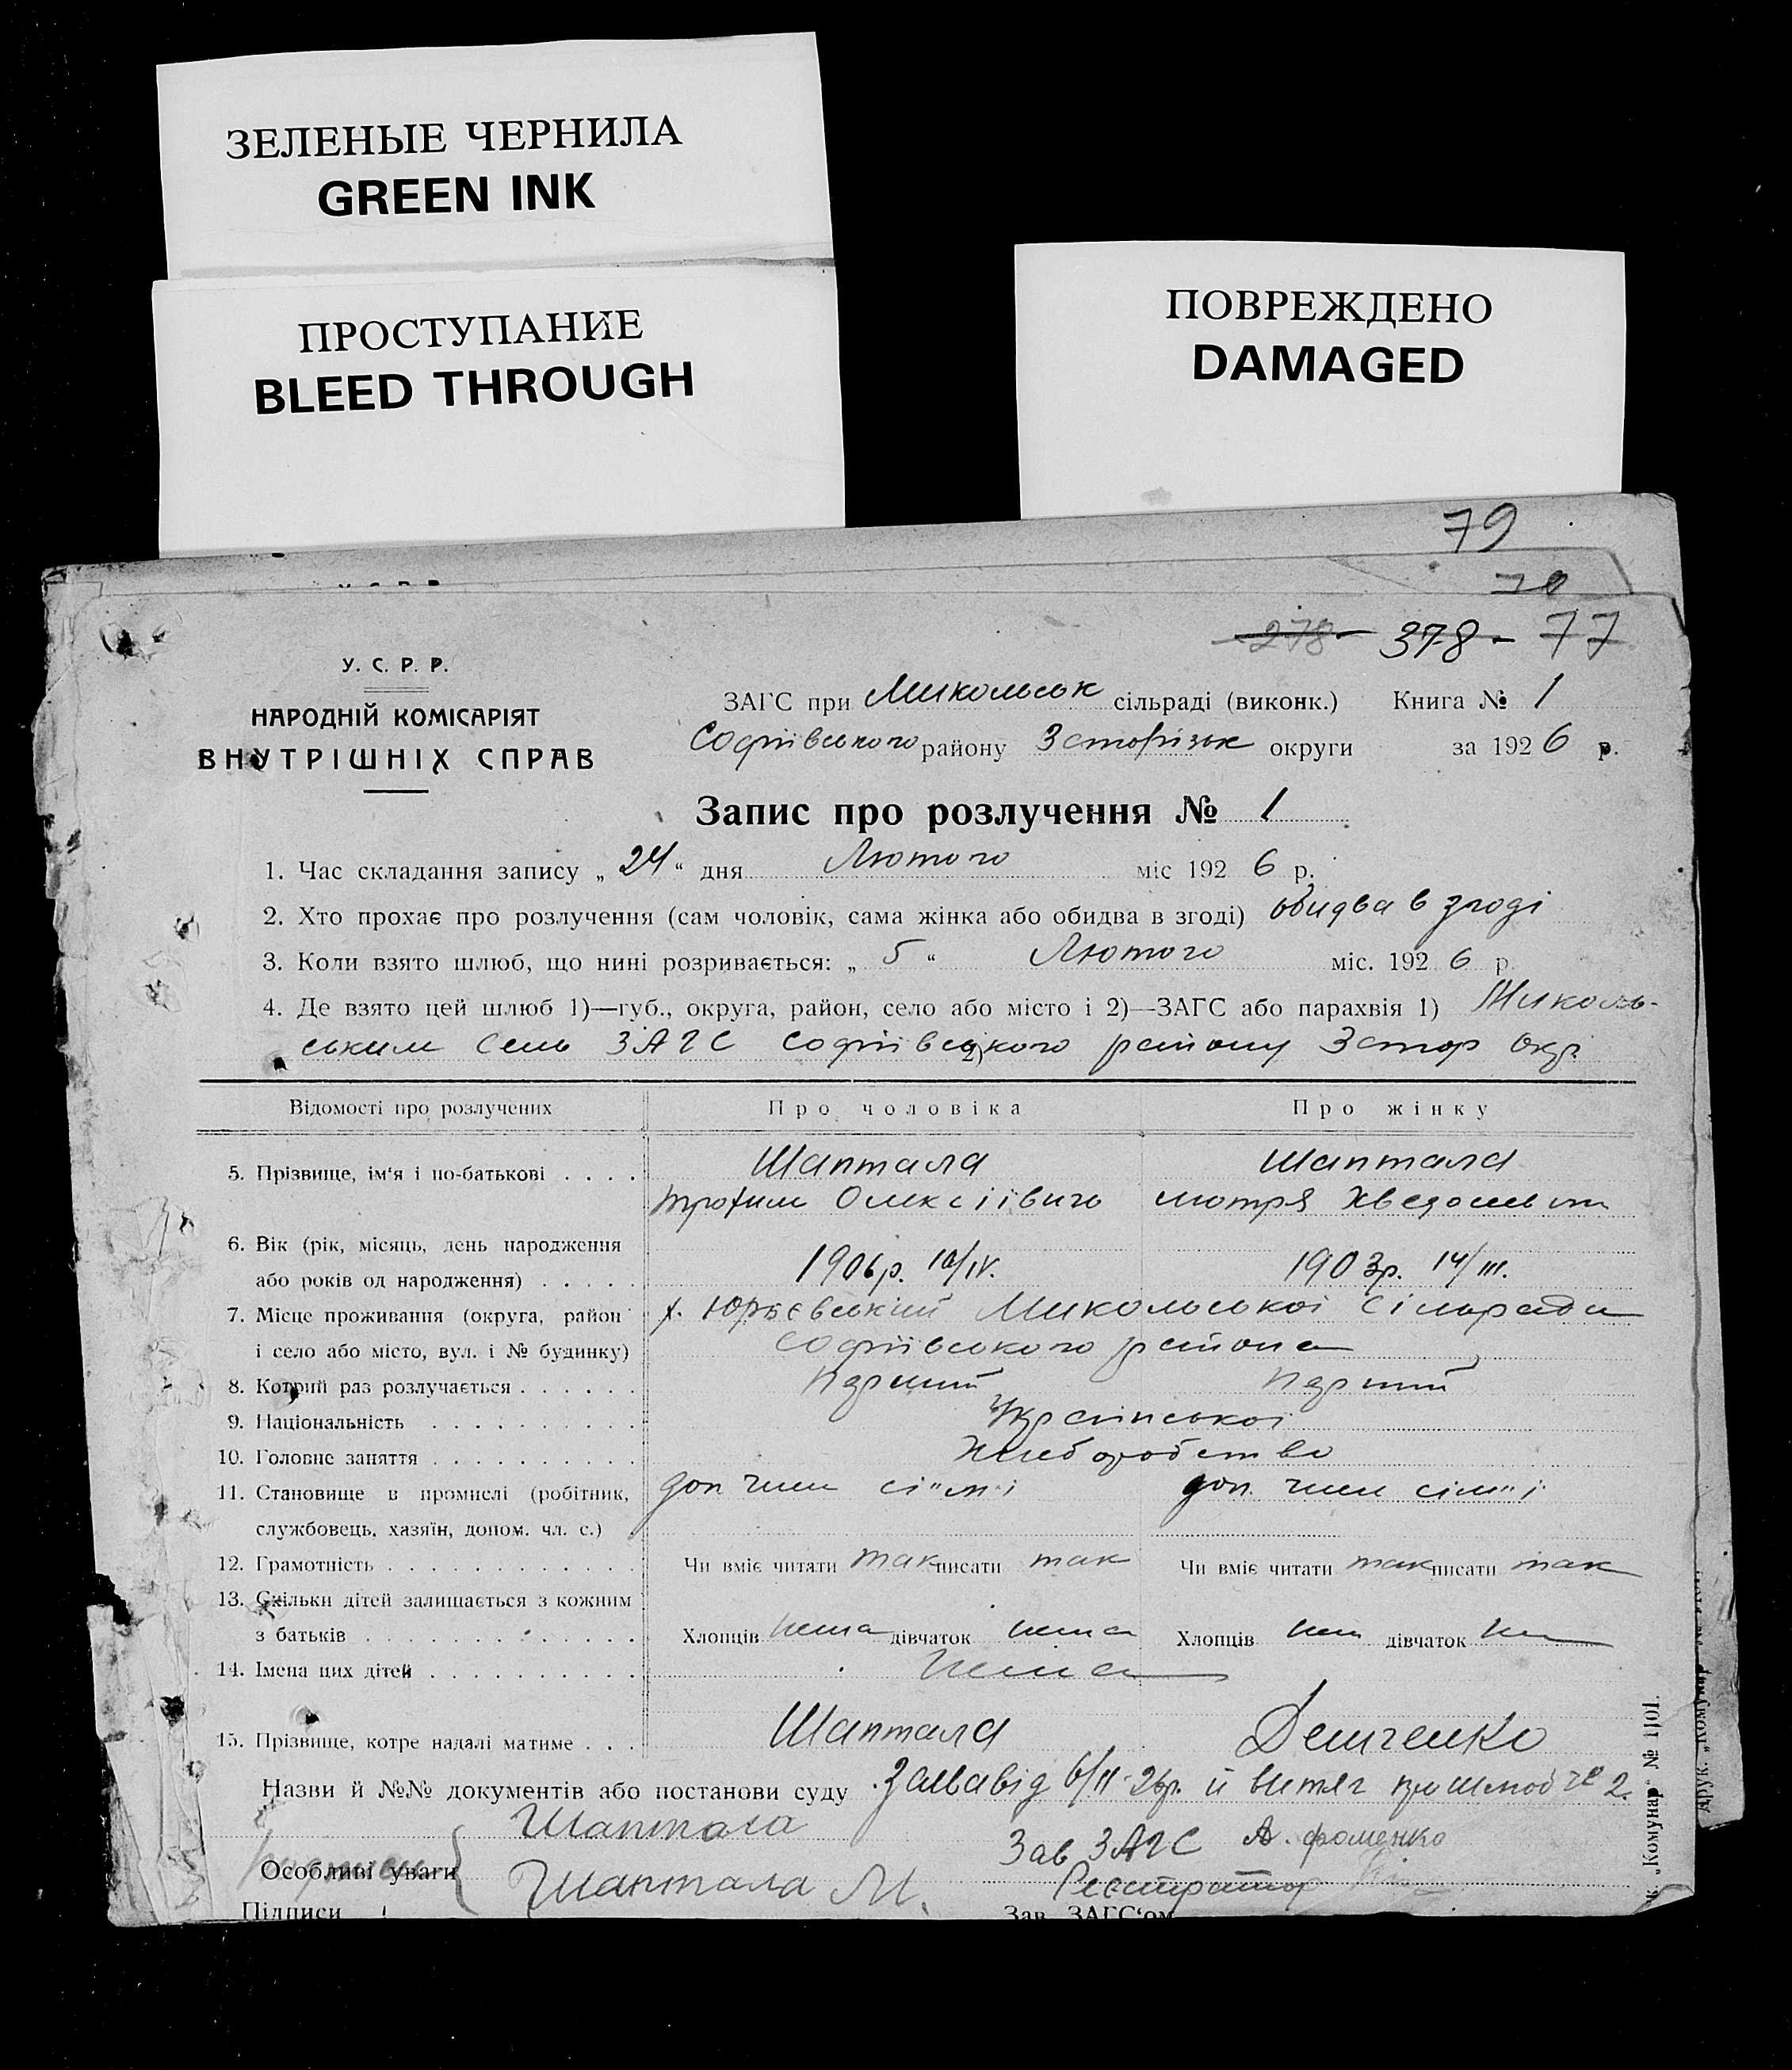 ЗЕЛЕНЫЕ ЧЕРНИЛА
GREEN INK
ПРОСТУПАНИЕ
BLEED THROUGH
ПОВРЕЖДЕНО
DAMAGED
79
278 - 378 - 77
У. С. Р. Р.
НАРОДНІЙ КОМІСАРІЯТ
ВНУТРІШНІХ СПРАВ
ЗАГС при Микольськ сільраді (виконк.) Книга № 1
Софіївського району Запоріжк округи за 1926 р.
Запис про розлучення № 1
1. Час складання запису „ 24 “ дня Лютого міс 1926 р.
2. Хто прохає про розлучення (сам чоловік, сама жінка або обидва в згоді) обидва в згоді
3. Коли взято шлюб, що нині розривається: „ 5 “ Лютого міс. 1926 р.
4. Де взято цей шлюб 1)—губ., округа, район, село або місто і 2)—ЗАГС або парахвія 1) Миколь-
ським Сель ЗАГС Софіївського 2) району Запор окр.
Відомості про розлучених Про чоловіка Про жінку
5. Прізвище, ім‘я і по-батькові . . . . Шаптала Шаптала
Трохим Олексіївич мотря
6. Вік (рік, місяць, день народження
або років од народження) . . . . . 1906р. 10/IV. 1903р. 14/III.
7. Місце проживання (округа, район х. Юрьєвський Микольської Сільради
і село або місто, вул. і № будинку) Софіївського района
8. Котрий раз розлучається . . . . . . Перший Перший
9. Національність . . . . . . . . . . Української
10. Головне заняття . . . . . . . . . . Хлеборобство
11. Становище в промислі (робітник, доп член сім"ї доп. член сім"ї
службовець, хазяїн, допом. чл. с.)
12. Грамотність . . . . . . . . . . . . Чи вміє читати так писати так Чи вміє читати так писати так
13. Скільки дітей залишається з кожним
з батьків . . . . . . . . . . . . . Хлопців нема дівчаток нема Хлопців нем дівчаток не
14. Імена цих дітей . . . . . . . . . . Нема
15. Прізвище, котре надалі матиме . . . Шаптала Демченко
Назви й №№ документів або постанови суду 6/II-26р. й витяг про шлюб № 2.
Шаптала
Зав ЗАГС А. Фоменко
Особливі уваги Шаптала М. Реєстратор
Підписи Зав. ЗАГС‘ом
„Комунар“ № 1101.